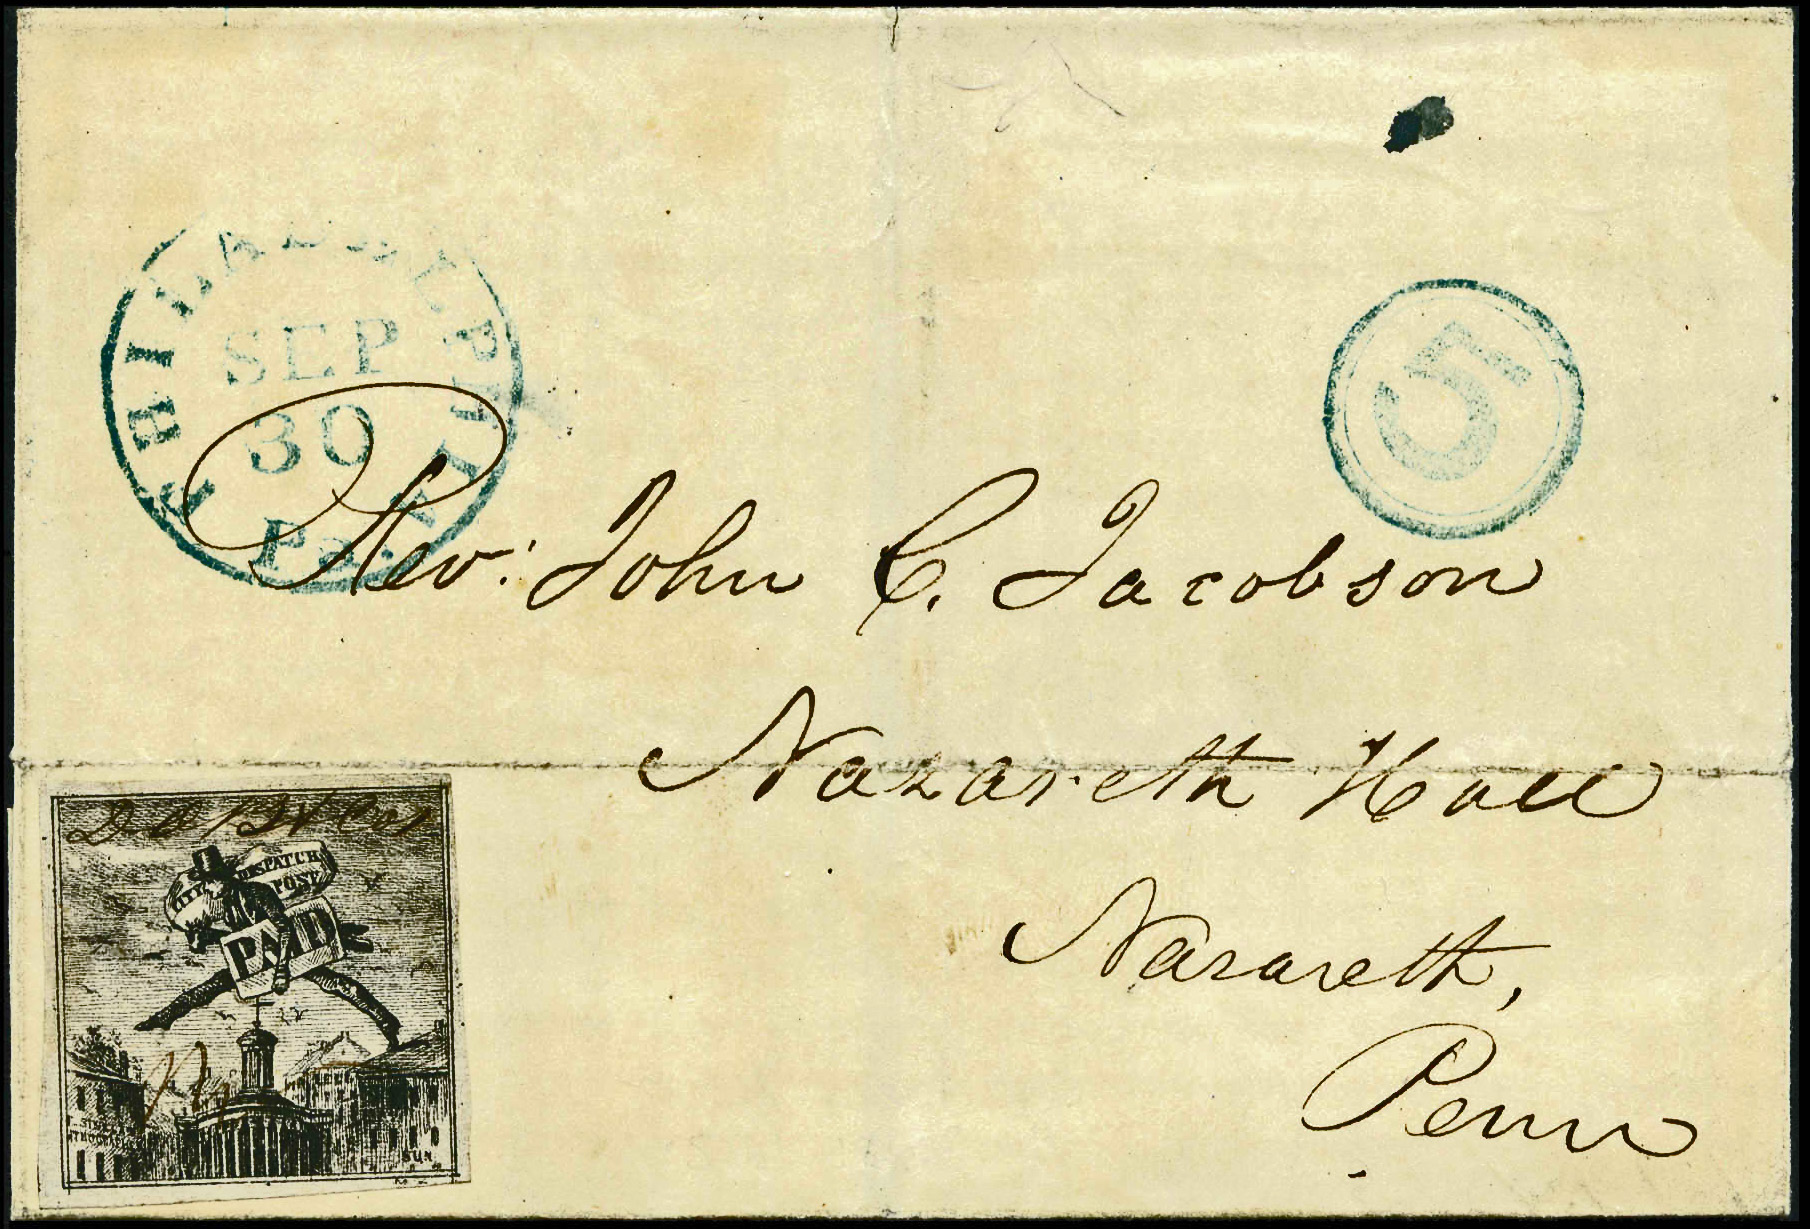 PHILADELPHIA
SEP
30
Pa.
5
Rev: John C. Jacobson
Nazareth Hall
Nazareth,
Penn
CITY DESPATCH
POST
PAID
SUN